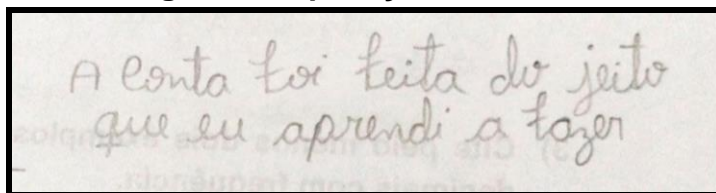 A conta foi feita do jeito
que eu aprendi a fazer